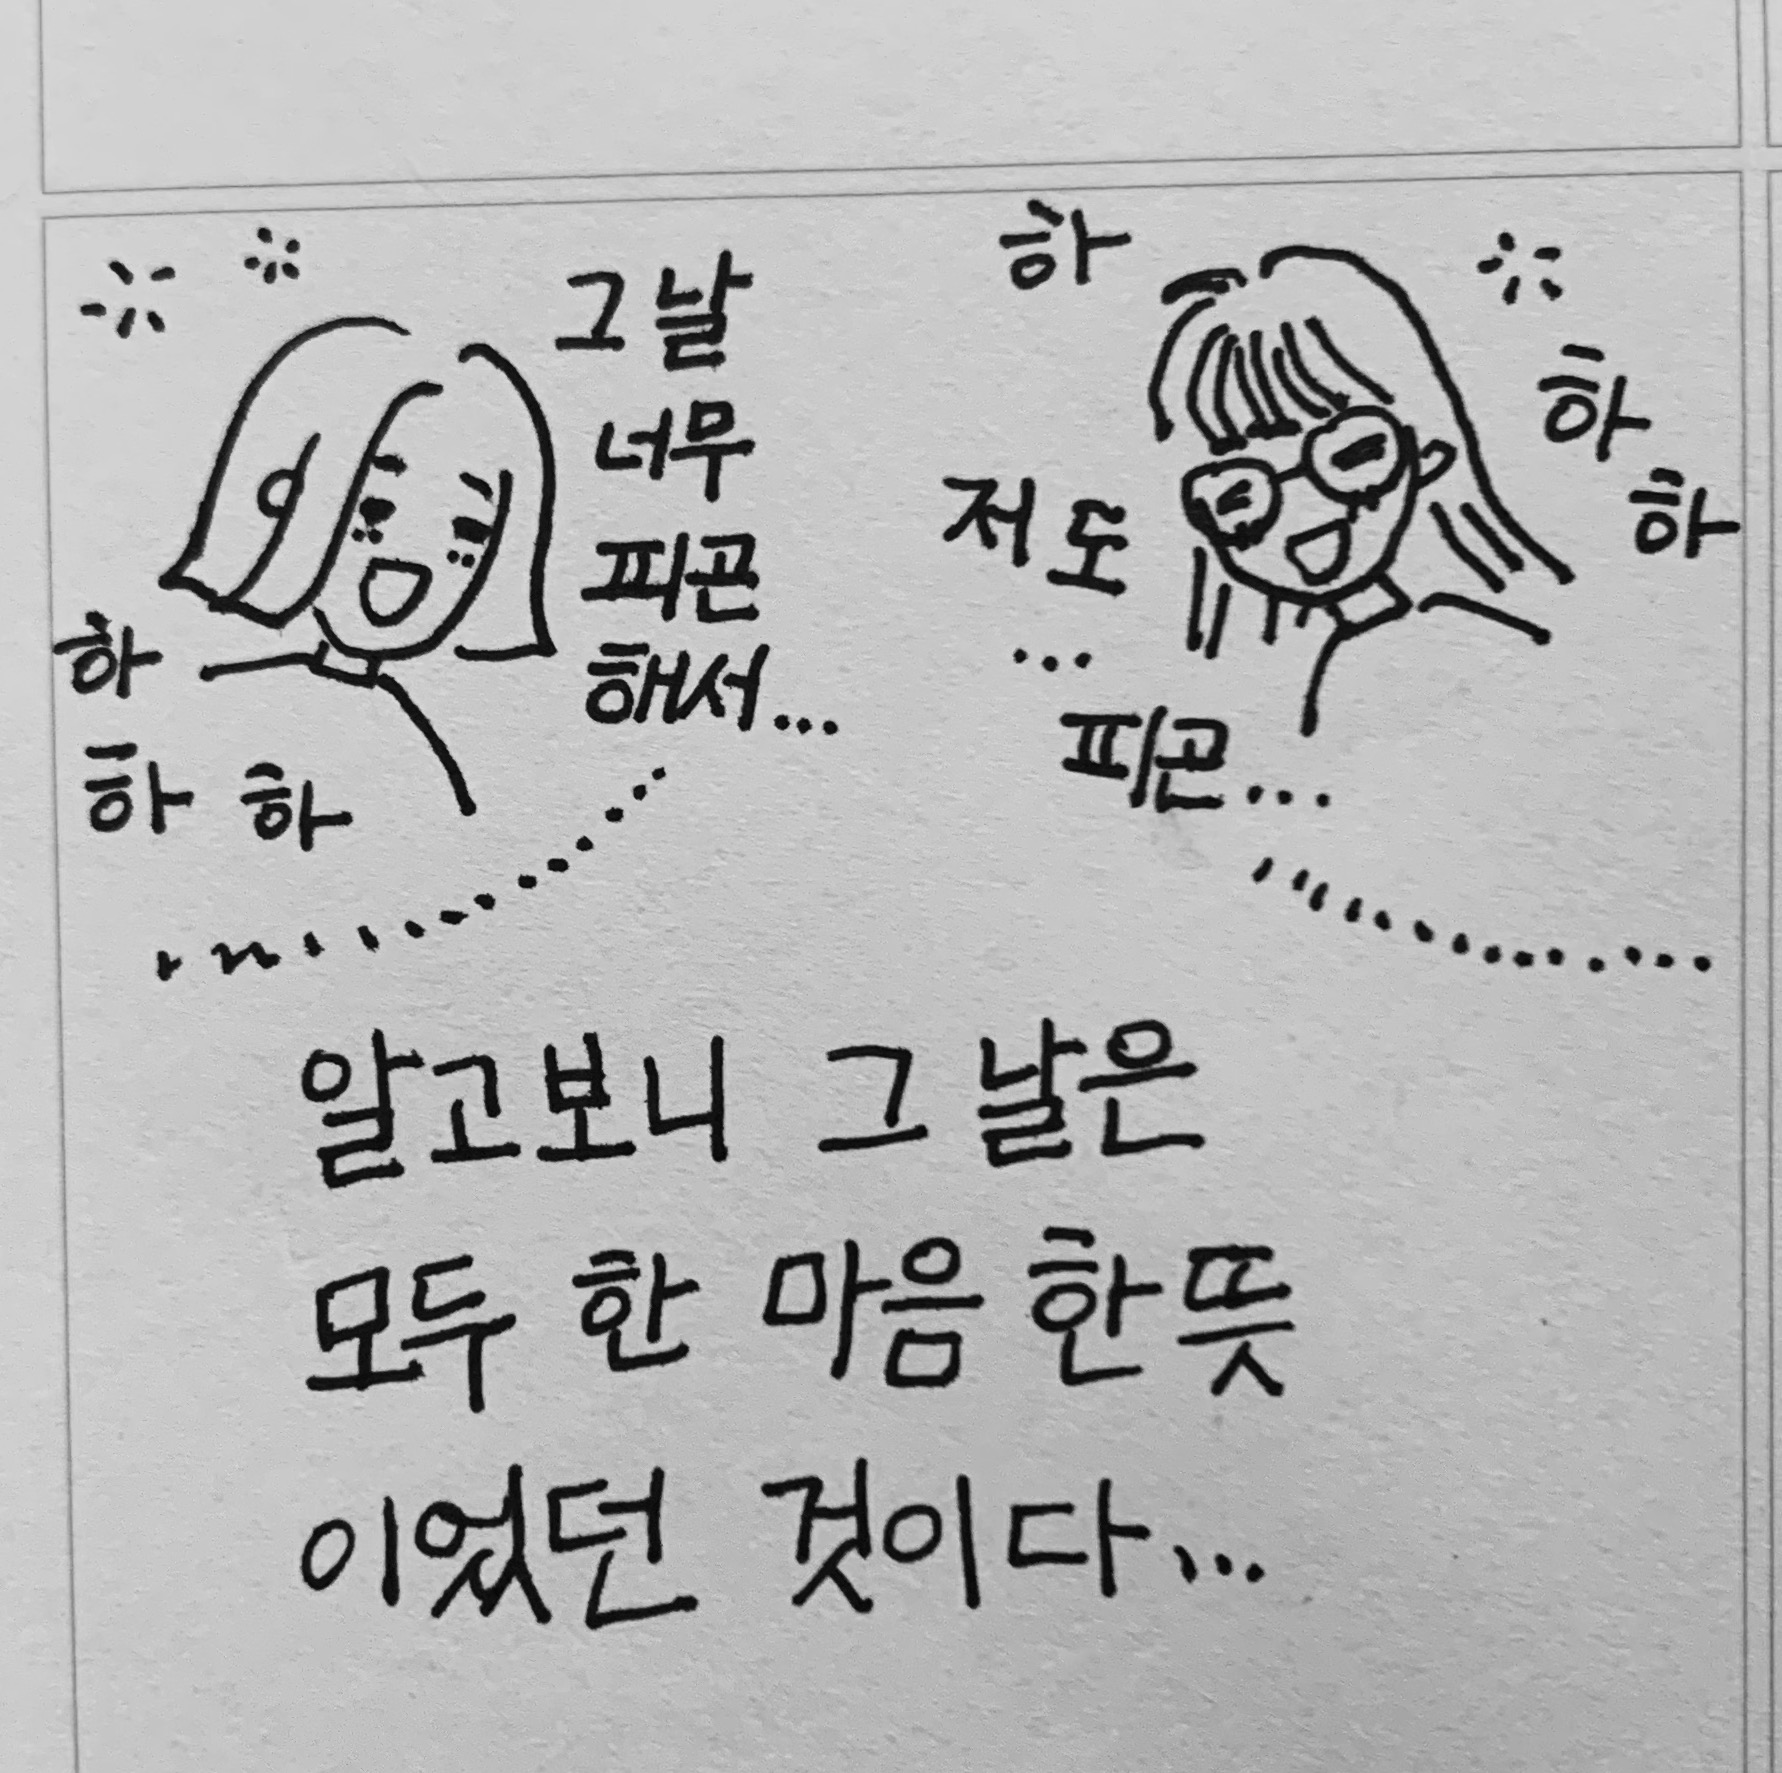 그날
너무
피곤
해서...
하
하 하
하
하
하
저도
...
피곤...
알고보니 그 날은
모두 한 마음 한 뜻
이었던 것이다...